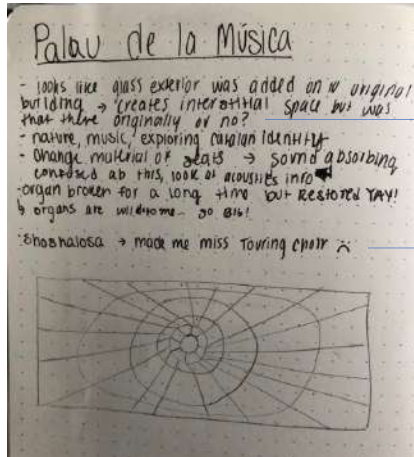 Palau de la Música
- looks like glass exterior was added on w original
building → creates interstitial space but was
that there originally or no?
- nature, music, exploring catalan identity
- change material of seats → sound absorbing
confused ab this, look at acoustics info
- organ broken for a long time but RESTORED YAY!
↳ organs are wild to me - so BIG!
- Shoshalosa → made me miss Touring choir :(